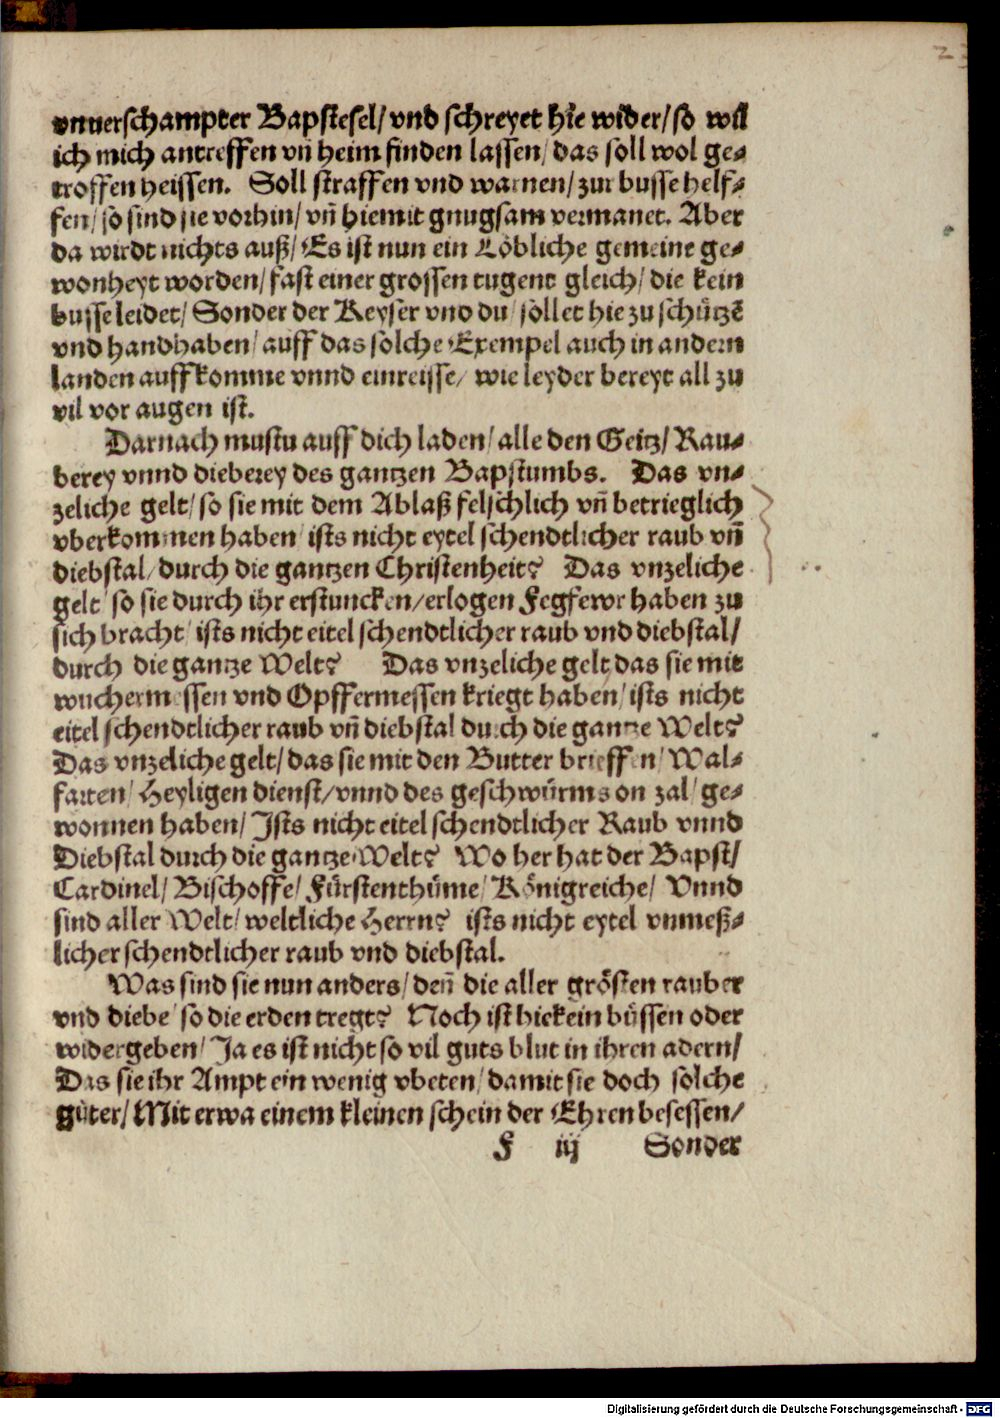 23
vnuerschampter Bapstesel/ vnd schreyet hie wider/ so will
ich mich antreffen vñ heim finden lassen/ das soll wol ge⸗
troffen heissen. Soll straffen vnd warnen/ zur busse helf⸗
fen/ so sind sie vorhin/ vñ hiemit gnugsam vermanet. Aber
da wirdt nichts auß/ Es ist nun ein Löbliche gemeine ge⸗
wonheyt worden/ fast einer grossen tugent gleich/ die kein
busse leidet/ Sonder der Keyser vnd du/ sollet hie zu schützē
vnd handhaben/ auff das solche Exempel auch in andern
landen auffkomme vnnd einreisse/ wie leyder bereyt all zu
vil vor augen ist.
Darnach mustu auff dich laden/ alle den Geitz/ Rau⸗
berey vnnd dieberey des gantzen Bapstumbs. Das vn⸗
zeliche gelt/ so sie mit dem Ablaß felschlich vñ betrieglich
vberkommen haben/ ists nicht eytel schendtlicher raub vñ
diebstal/ durch die gantzen Christenheit? Das vnzeliche
gelt/ so sie durch ihr erstuncken/ erlogen Fegfewr haben zu
sich bracht/ ists nicht eitel schendtlicher raub vnd diebstal/
durch die gantze Welt? Das vnzeliche gelt/ das sie mit
wuchermessen vnd Opffermessen kriegt haben/ ists nicht
eitel schendtlicher raub vñ diebstal durch die gantze Welt?
Das vnzeliche gelt/ das sie mit den Butter brieffen/ Wal⸗
farten/ Heyligen dienst/ vnnd des geschwürms on zal/ ge⸗
wonnen haben/ Ists nicht eitel schendtlicher Raub vnnd
Diebstal durch die gantze Welt? Wo her hat der Bapst/
Cardinel/ Bischoffe/ Fürstenthüme/ Königreiche/ Vnnd
sind aller Welt/ weltliche Herrn? ists nicht eytel vnmeß⸗
licher schendtlicher raub vnd diebstal.
Was sind sie nun anders/ deñ die aller grösten rauber
vnd diebe/ so die erden tregt? Noch ist hie kein büssen oder
widergeben/ Ja es ist nicht so vil guts blut in ihren adern/
Das sie ihr Ampt ein wenig vbeten/ damit sie doch solche
güter/ Mit etwa einem kleinen schein der Ehren besessen/
F iij Sonder
Digitalisierung gefördert durch die Deutsche Forschungsgemeinschaft - DFG